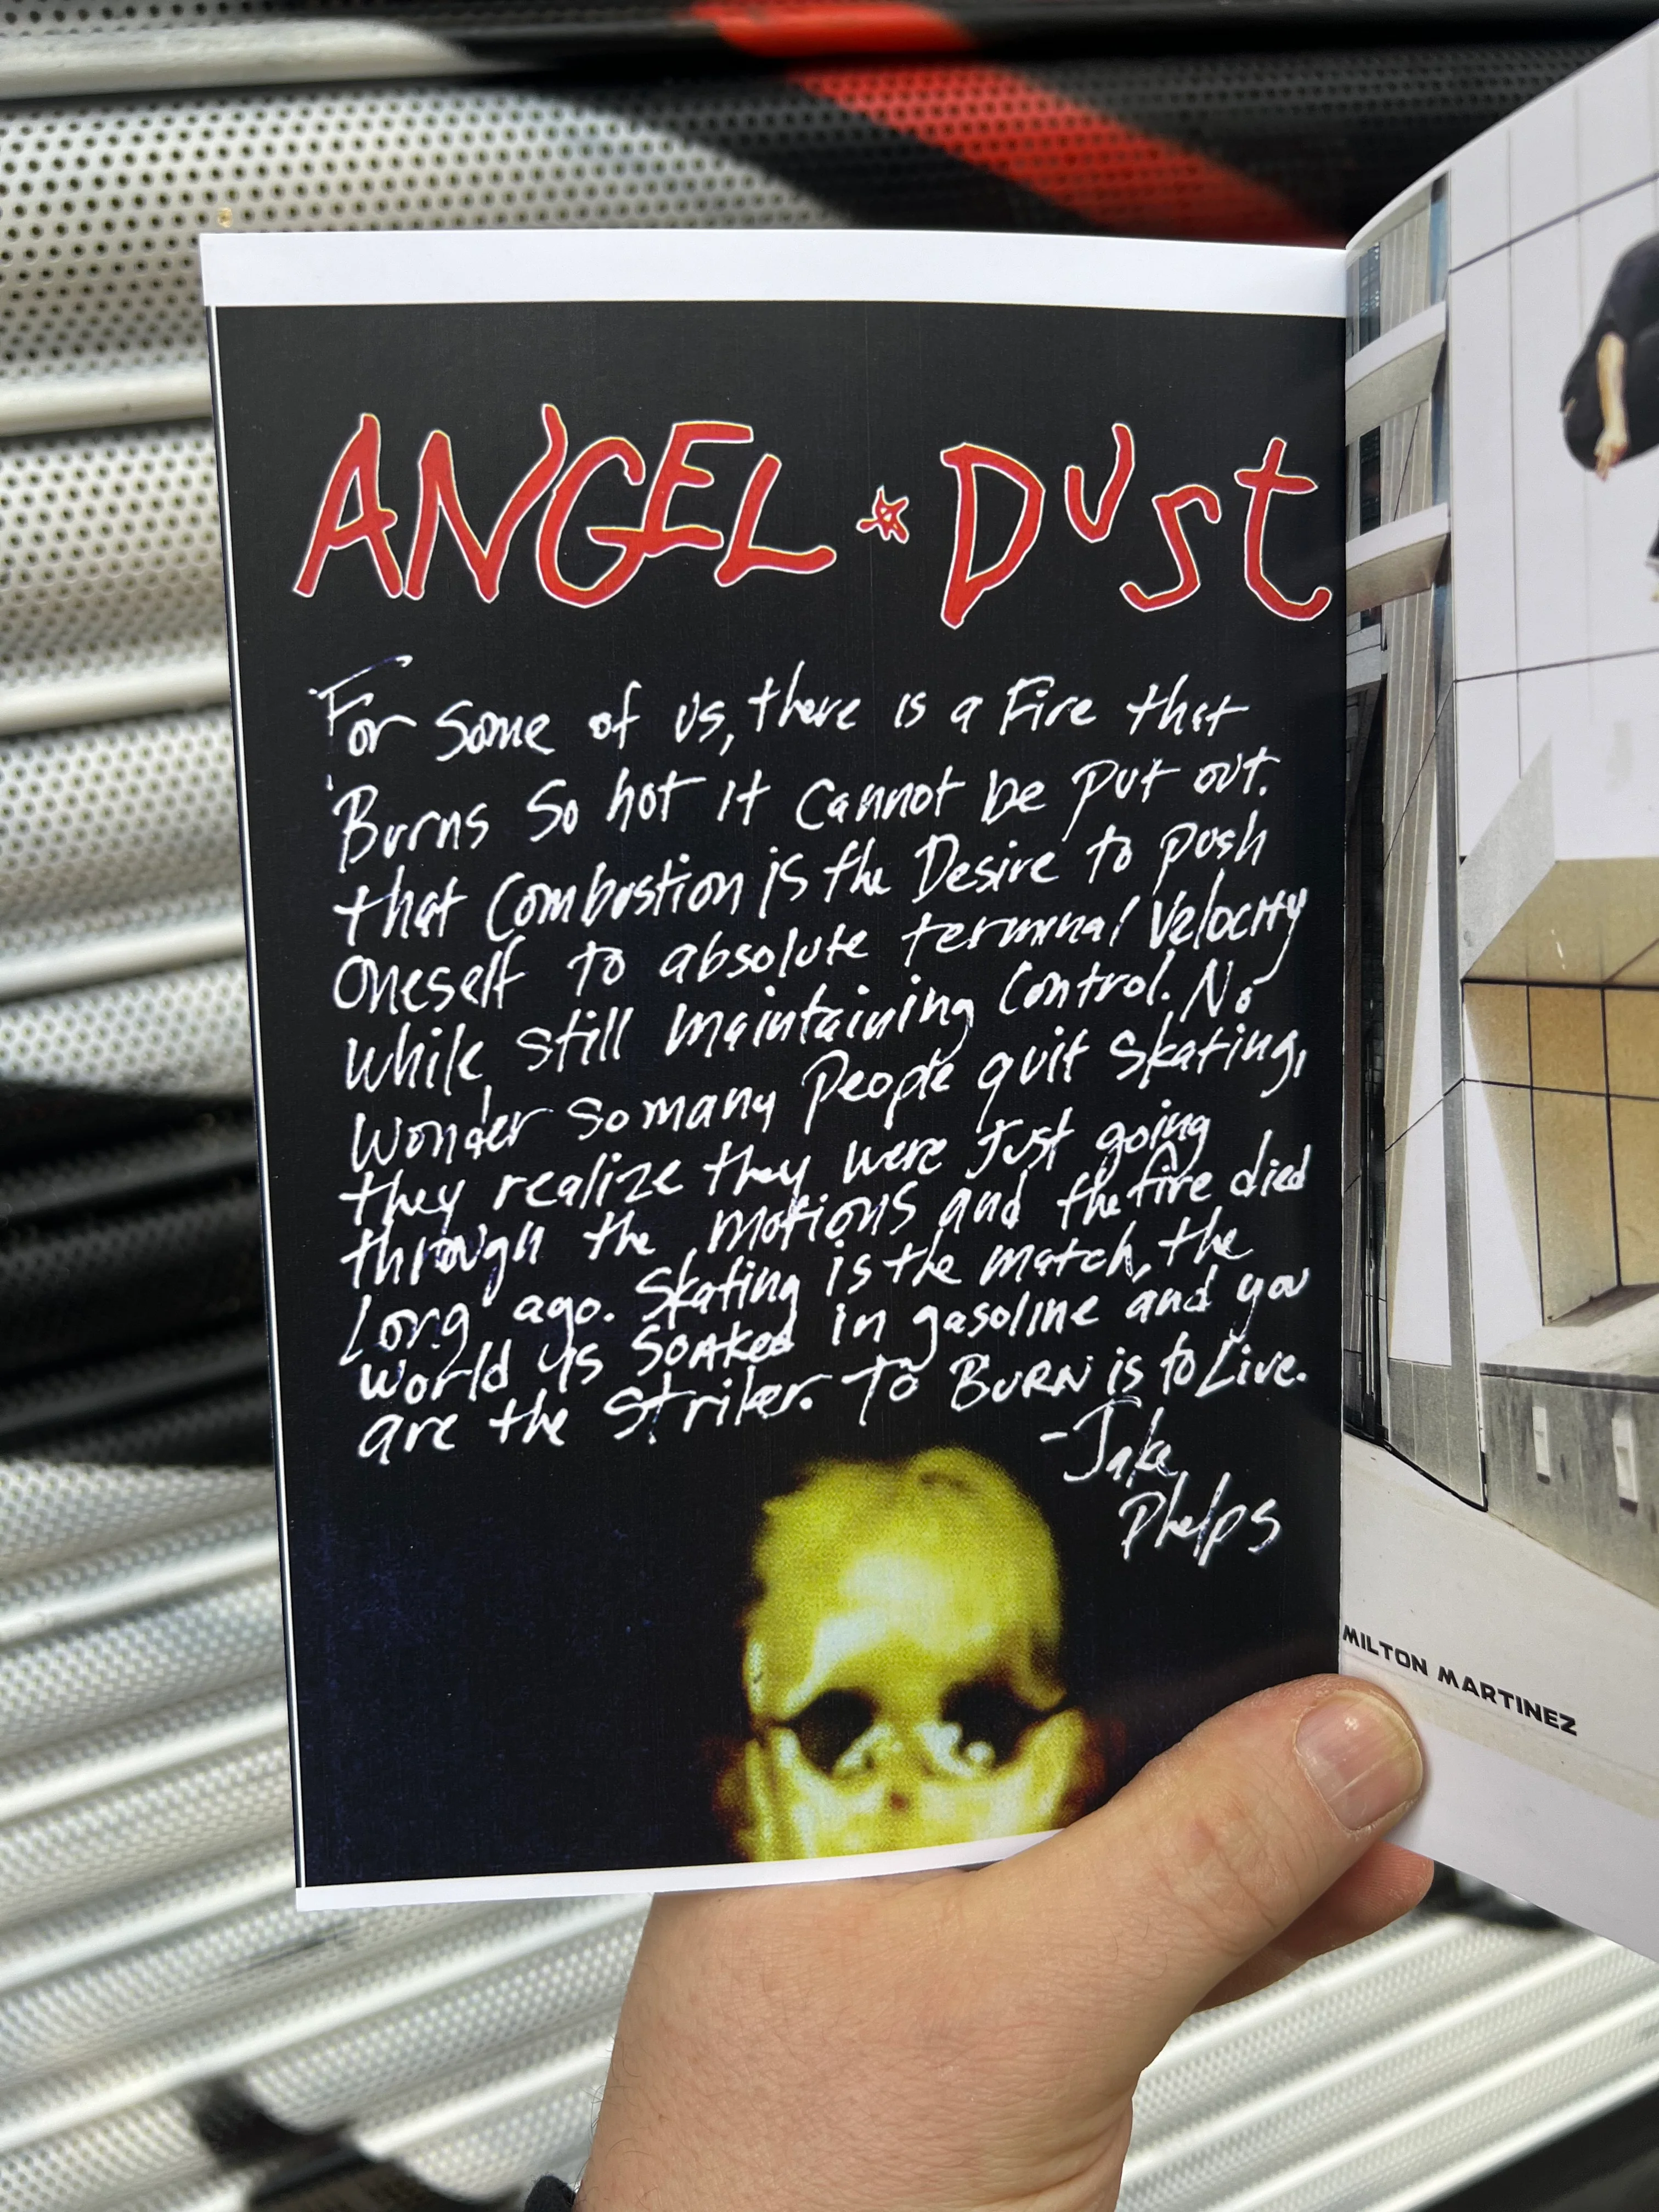 ANGEL * DUST
For Some of us, there is a Fire that
Burns So hot it Cannot be put out.
that Combustion is the Desire to push
Oneself to absolute terminal Velocity
While still maintaining Control. No
Wonder so many People quit Skating,
they realize they were Just going
through the motions and the fire died
Long ago. Skating is the match, the
World is SOAKED in gasoline and you
are the Striker. To BURN is to Live.
-Jake
Phelps
MILTON MARTINEZ